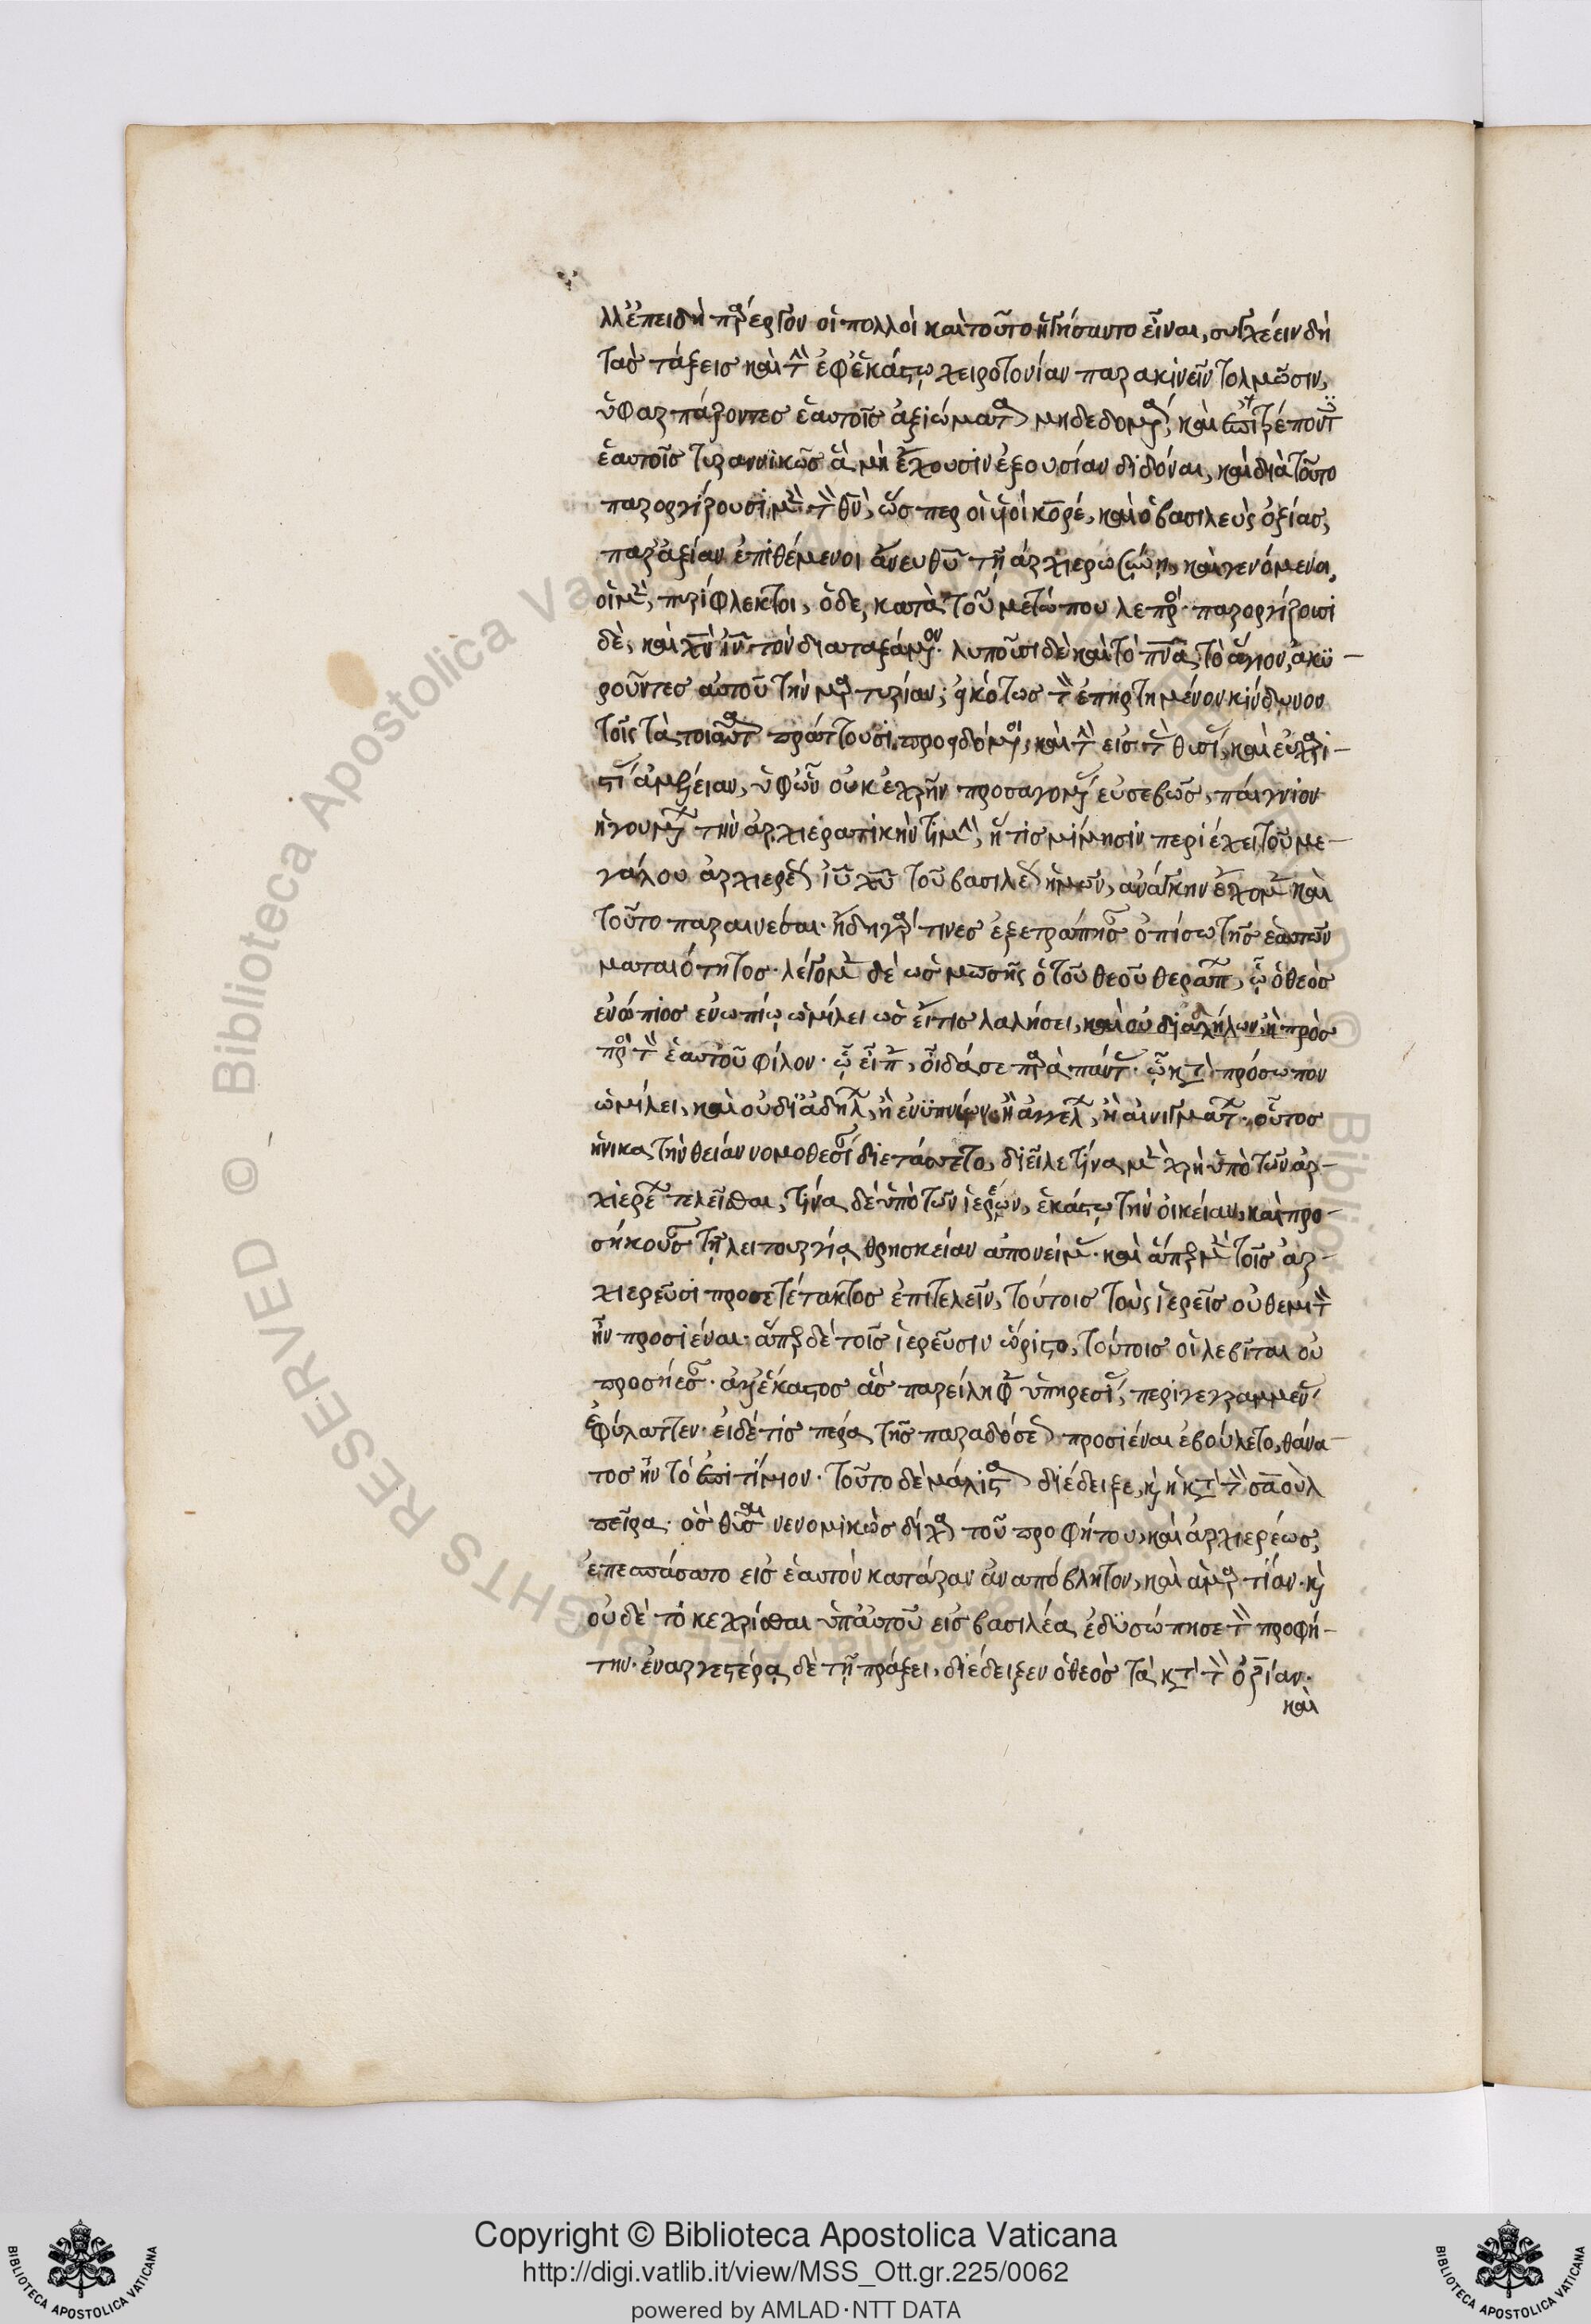 λλ' ἐπειδὴ πάρεργον οἱ πολλοὶ καὶ τοῦτο ἡγήσαντο εἶναι, συγχέειν δὴ
τὰς τάξεις καὶ τὴν ἐφ' ἑκάστῳ χειροτονίαν παρακινεῖν τολμῶσιν,
ὑφαρπάζοντες ἑαυτοῖς ἀξιώματα μὴ δεδομένα, καὶ ἐπιτρέποντες
ἑαυτοῖς τυραννικῶς ἃ μὴ ἔχουσιν ἐξουσίαν διδόναι, καὶ διὰ τοῦτο
παροργίζουσι μὲν τὸν θν, ὥσπερ οἱ υἱοὶ κορέ, καὶ ὁ βασιλεὺς ὀζίας,
παρ' ἀξίαν ἐπιθέμενοι ἄνευ θυ τῇ ἀρχιερωσύνῃ, καὶ γενόμενοι,
οἱ μὲν, πυρίφλεκτοι, ὁ δὲ, κατὰ τοῦ μετώπου λεπρός. παροργίζουσι
δὲ, καὶ χν ιν τὸν διαταξάμενον. λυποῦσι δὲ καὶ τὸ πνα τὸ ἅγιον, ἀκυ
ροῦντες αὐτοῦ τὴν μαρτυρίαν; εἰκότως τὸν ἐπηρτημένον κίνδυνον
τοῖς τὰ τοιαῦτα πράττουσι προειδόμενοι, καὶ τὴν εἰς τὰς θυσίας, καὶ εὐχαρι–
στίας ἀμέλειαν, ὑφ' ὧν οὐκ ἐχρῆν προσαγομένην εὐσεβῶς, παίγνιον
ἡγουμένων τὴν ἀρχιερατικὴν τιμὴν, ἥτις μίμησιν περιέχει τοῦ με–
γάλου ἀρχιερέως ιυ χυ τοῦ βασιλέως ἡμῶν, ἀνάγκην ἔσχομεν καὶ
τοῦτο παραινέσαι. ἤδη γάρ τινες ἐξετράπησαν ὀπίσω τῆς ἑαυτῶν
ματαιότητος. λέγομεν δὲ ὡς μωσῆς ὁ τοῦ θεοῦ θεράπων, ᾧ ὁ θεὸς
ἐνώπιος ἐνωπίῳ ὡμίλει ὡς εἴ τις λαλήσει, καὶ οὐ δι' ἀλλήλων, ἢ πρὸς
πρὸς τὸν ἑαυτοῦ φίλον. ᾧ εἶπεν, οἶδά σε παρὰ πάντας. ᾧ κατὰ πρόσωπον
ὡμίλει, καὶ οὐ δι' ἀδήλων, ἢ ἐνυπνίων, ἢ ἀγγέλων, ἢ αἰνιγμάτων. οὗτος
ἡνίκα τὴν θείαν νομοθεσίαν διετάττετο, διεῖλε τίνα μὲν χρὴ ὑπὸ τῶν ἀρ–
χιερέων τελεῖσθαι, τίνα δὲ ὑπὸ τῶν ἱερέων, ἑκάστῳ τὴν οἰκείαν, καὶ προ–
σήκουσαν τῇ λειτουργίᾳ θρησκείαν ἀπονείμας. καὶ ἅπερ μὲν τοῖς ἀρ–
χιερεῦσι προσετέτακτος ἐπιτελεῖν, τούτοις τοὺς ἱερεῖς οὐ θεμιτὸν
ἦν προσιέναι. ἅπερ δὲ τοῖς ἱερεῦσιν ὥριστο, τούτοις οἱ λεβῖται οὐ
προσῄεσαν. ἀλλ' ἕκαστος ἃς παρείληφεν ὑπηρεσίας, περιγεγραμμένας
ἐφύλαττεν. εἰ δέ τις πέρα τῆς παραδόσεως προσιέναι ἐβούλετο, θάνα–
τος ἦν τὸ ἐπιτίμιον. τοῦτο δὲ μάλιστα διέδειξε, καὶ ἡ κατὰ τὸν σαοὺλ
πεῖρα. ὃς θῦσαι νενομικὼς δίχα τοῦ προφήτου, καὶ ἀρχιερέως,
ἐπεσπάσατο εἰς ἑαυτὸν κατάραν ἀναπόβλητον, καὶ ἁμαρτίαν. καὶ
οὐδὲ τὸ κεχρίσθαι ὑπ' αὐτοῦ εἰς βασιλέα ἐδυσώπησε τὸν προφή–
την. ἐναργεστέρᾳ δὲ τῇ πράξει, διέδειξεν ὁ θεὸς τὰ κατὰ τὸν ὀζίαν.
καὶ
Copyright © Biblioteca Apostolica Vaticana
http://digi.vatlib.it/view/MSS_Ott.gr.225/0062
powered by AMLAD·NTT DATA